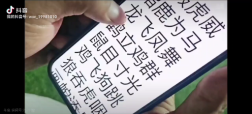 抖音
虎威
指鹿为马
龙飞凤舞
鹤立鸡群
鼠目寸光
鸡飞狗跳
狼吞虎咽